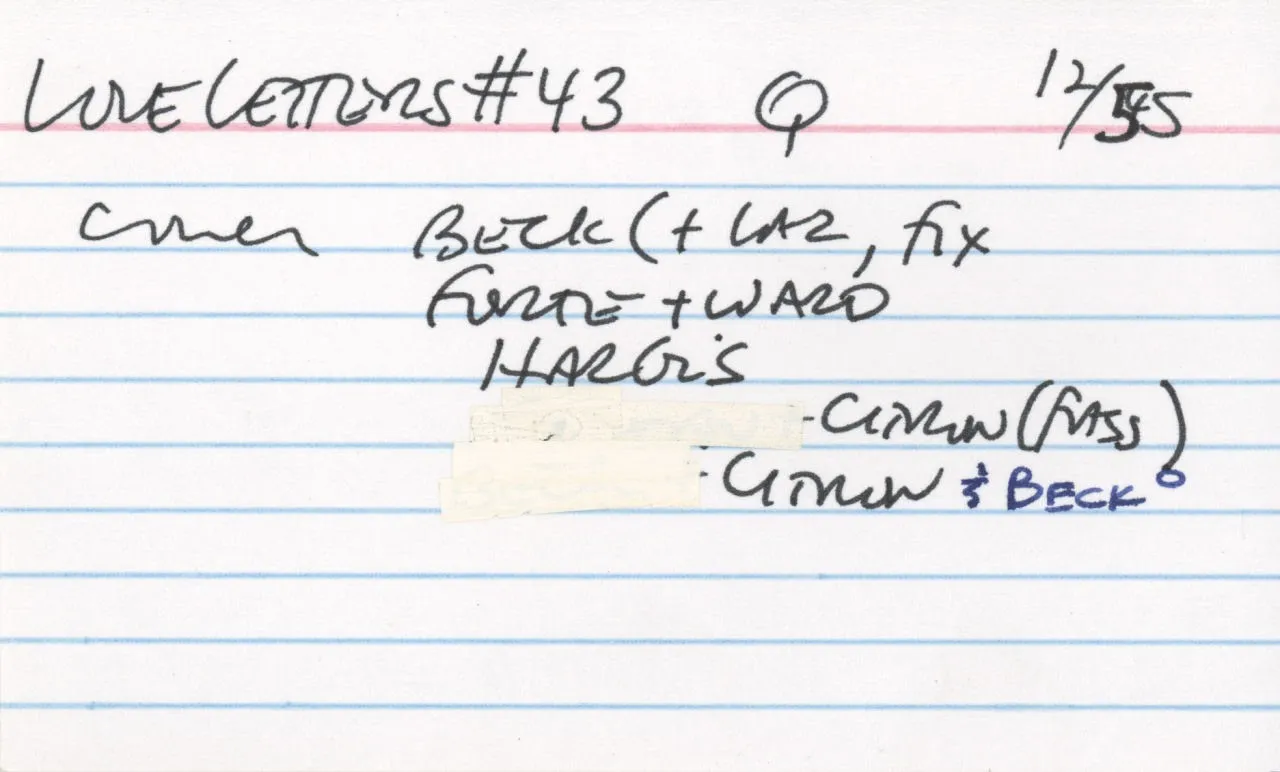 LOVE LETTERS #43 Q 12/55
cover BECK (+ LAZ, fix
FORTE + WARD
HARGIS
-CITRON (FRASS)
-CITRON & BECK